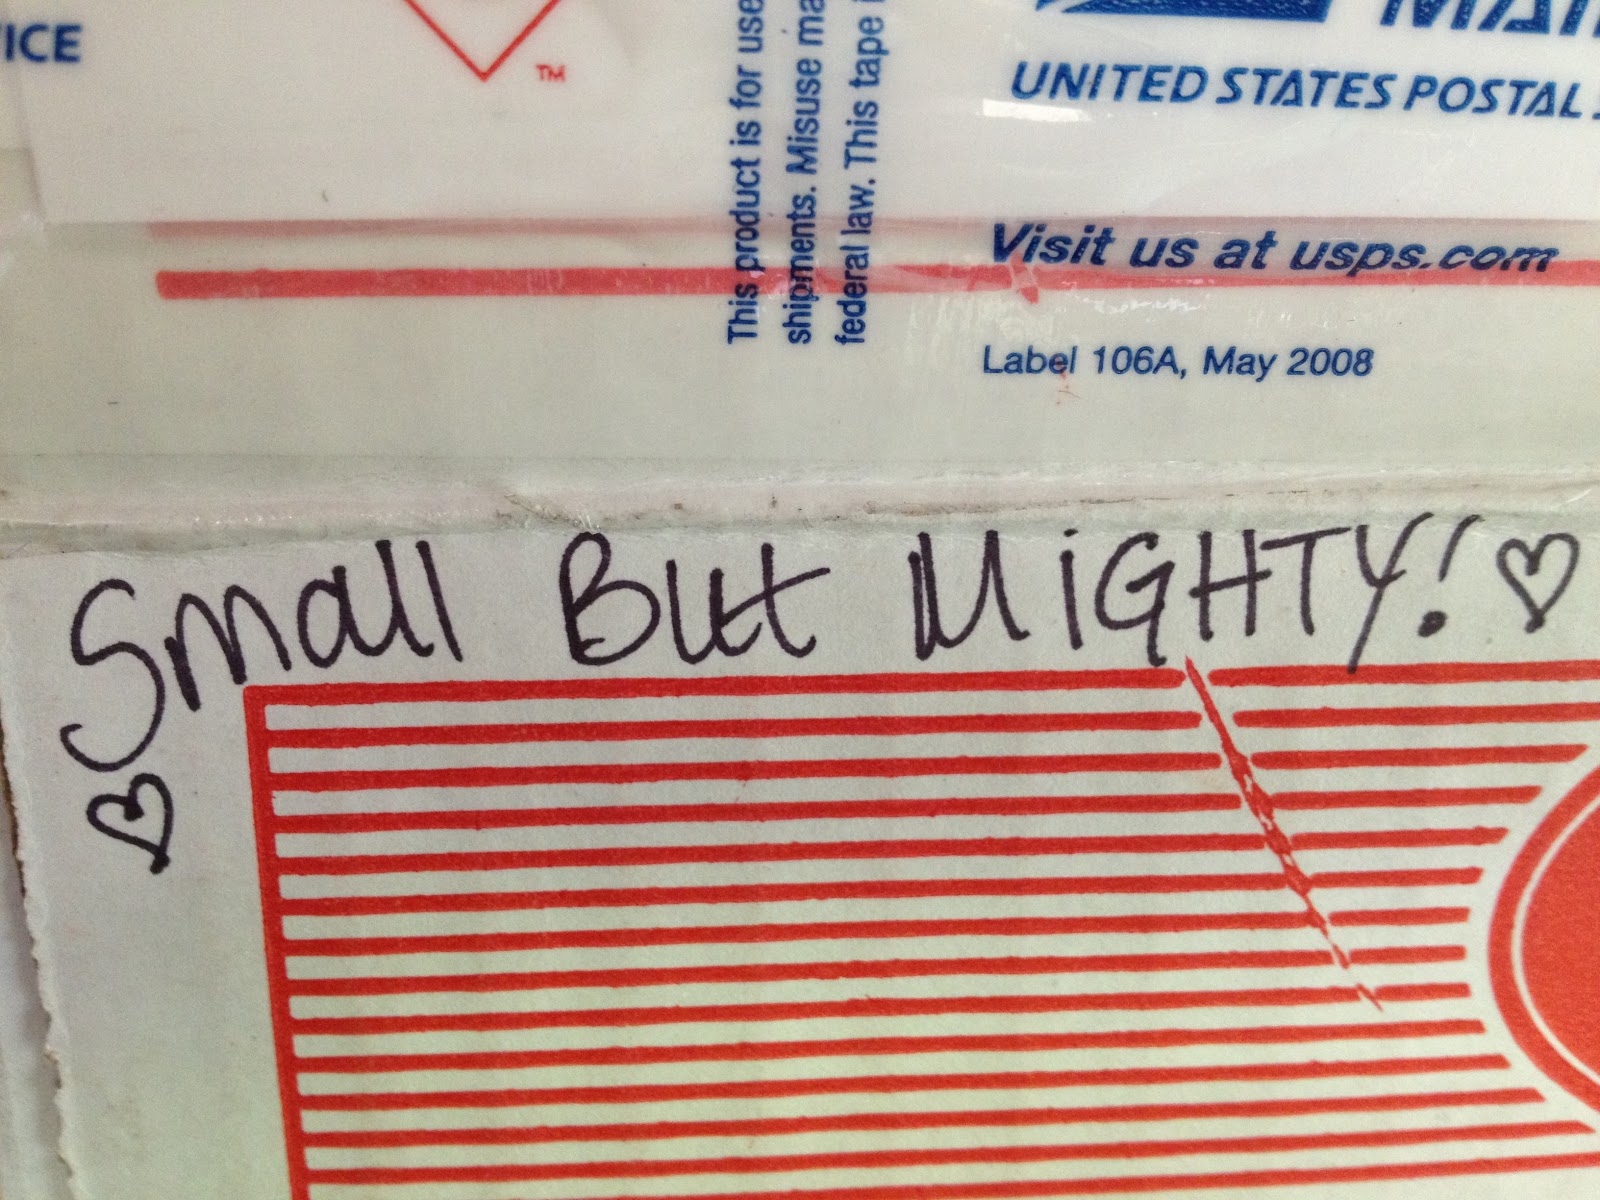 ICE
TM
UNITED STATES POSTAL
Visit us at usps.com
Label 106A, May 2008
This product is for use
shipments. Misuse
federal law. This tape
Small But MiGHTY! ♡
♡